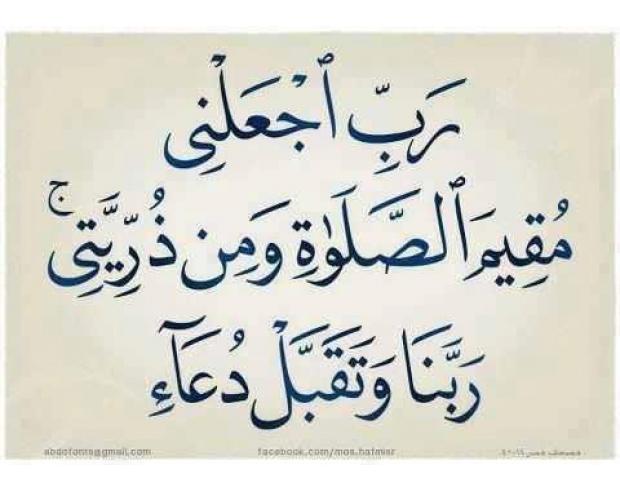 رَبِّ ٱجْعَلْنِى
مُقِيمَ ٱلصَّلَوٰةِ وَمِن ذُرِّيَّتِى ۚ
رَبَّنَا وَتَقَبَّلْ دُعَآءِ
abdofonts@gmail.com facebook.com/mos.hafmisr